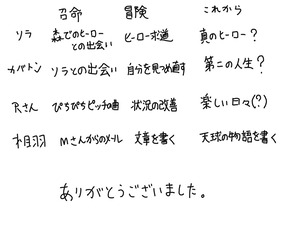 召命 冒険 これから
ソラ 森でのヒーローとの出会い ヒーロー求道 真のヒーロー?
カバトン ソラとの出会い 自分を見つめ直す 第二の人生?
Rさん ぴちぴちピッチの曲 状況の改善 楽しい日々(?)
相羽 Mさんからのメール 文章を書く 天球の物語を書く
ありがとうございました。